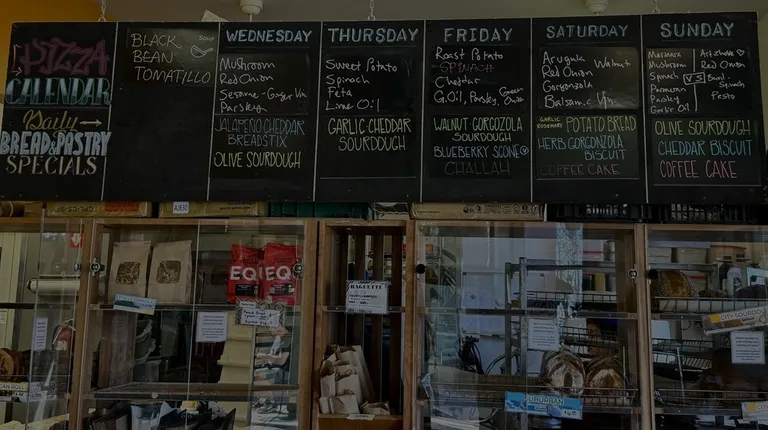 PIZZA
CALENDAR
Daily
BREAD & PASTRY
SPECIALS
BLACK
BEAN
TOMATILLO
SOUP
WEDNESDAY
Mushroom
Red Onion
Sesame-Ginger Vin
Parsley
JALAPEÑO CHEDDAR
BREADSTIX
OLIVE SOURDOUGH
THURSDAY
Sweet Potato
Spinach
Feta
Lime Oil
GARLIC CHEDDAR
SOURDOUGH
FRIDAY
Roast Potato
SPINACH
Cheddar
G.Oil, Parsley, Green Onion
WALNUT GORGOZOLA
SOURDOUGH
BLUEBERRY SCONE V
CHALLAH
SATURDAY
Arugula Walnut
Red Onion
Gorgonzola
Balsamic Vin.
GARLIC ROSEMARY POTATO BREAD
HERB GORGONZOLA
BISCUIT
COFFEE CAKE
SUNDAY
Mushroom
Spinach
Parmesan
Parsley
Garlic Oil
VS
Artichoke
Red Onion
Basil-
Spinach
Pesto
OLIVE SOURDOUGH
CHEDDAR BISCUIT
COFFEE CAKE
EQ EQ
BAGUETTE
CITY SOURDOUGH
SUBURBAN